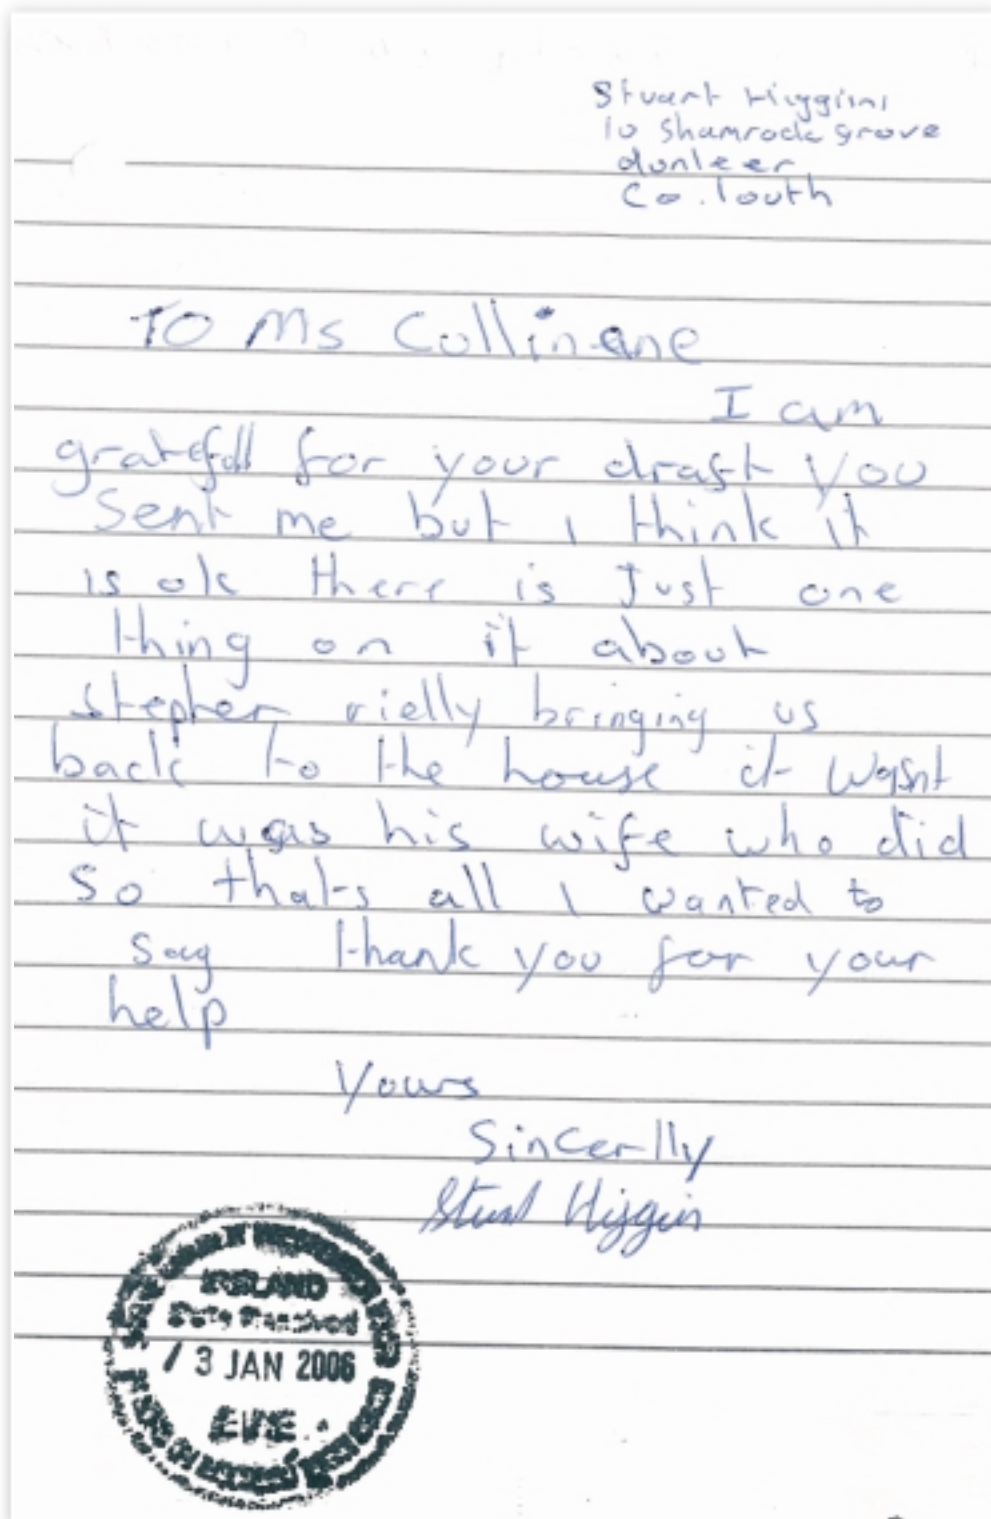 Stuart Higgins
10 Shamrock grove
dunleer
Co. louth
TO Ms Cullinane
I am
gratefull for your draft you
Sent me but I think it
is ok there is Just one
thing on it about
stephen rielly bringing us
back to the house it wasnt
it was his wife who did
So thats all I wanted to
say thank you for your
help
Yours
Sincerlly
Stuart Higgins
IRELAND
Date Received
13 JAN 2006